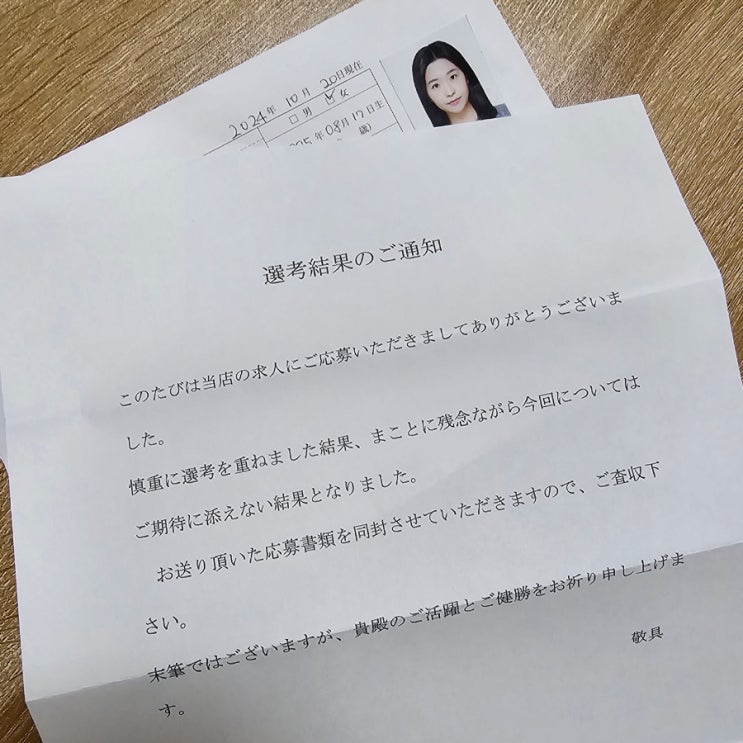 2024年 10月 20日現在
□ 男 ☑ 女
年 08月 17日生
歳)
選考結果のご通知
このたびは当店の求人にご応募いただきましてありがとうございま
した。
慎重に選考を重ねました結果、まことに残念ながら今回については
ご期待に添えない結果となりました。
お送り頂いた応募書類を同封させていただきますので、ご査収下
さい。
末筆ではございますが、貴殿のご活躍とご健勝をお祈り申し上げま
す。
敬具